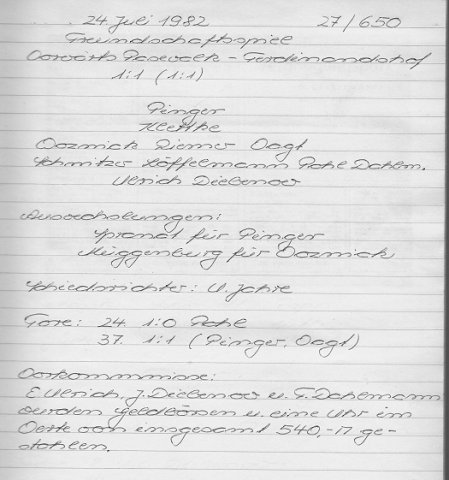 24. Juli 1982 27/650
Freundschaftsspiel
Vorwärts Pasewalk - Ferdinandshof
1:1 (1:1)
Pinger
Klettke
Woznick Riemer Vogt
Schmitzer Löffelmann Pohl Dahlm.
Ulrich Diebenow
Auswechslungen:
Spranat für Pinger
Müggenburg für Woznick
Schiedsrichter: U. Jahre
Tore: 24. 1:0 Pohl
37. 1:1 (Pinger, Vogt)
Vorkommnisse:
E. Ulrich, J. Diebenow u. F. Dahlmann
wurden Geldbörsen u. eine Uhr im
Werte von insgesamt 540,-M ge-
stohlen.